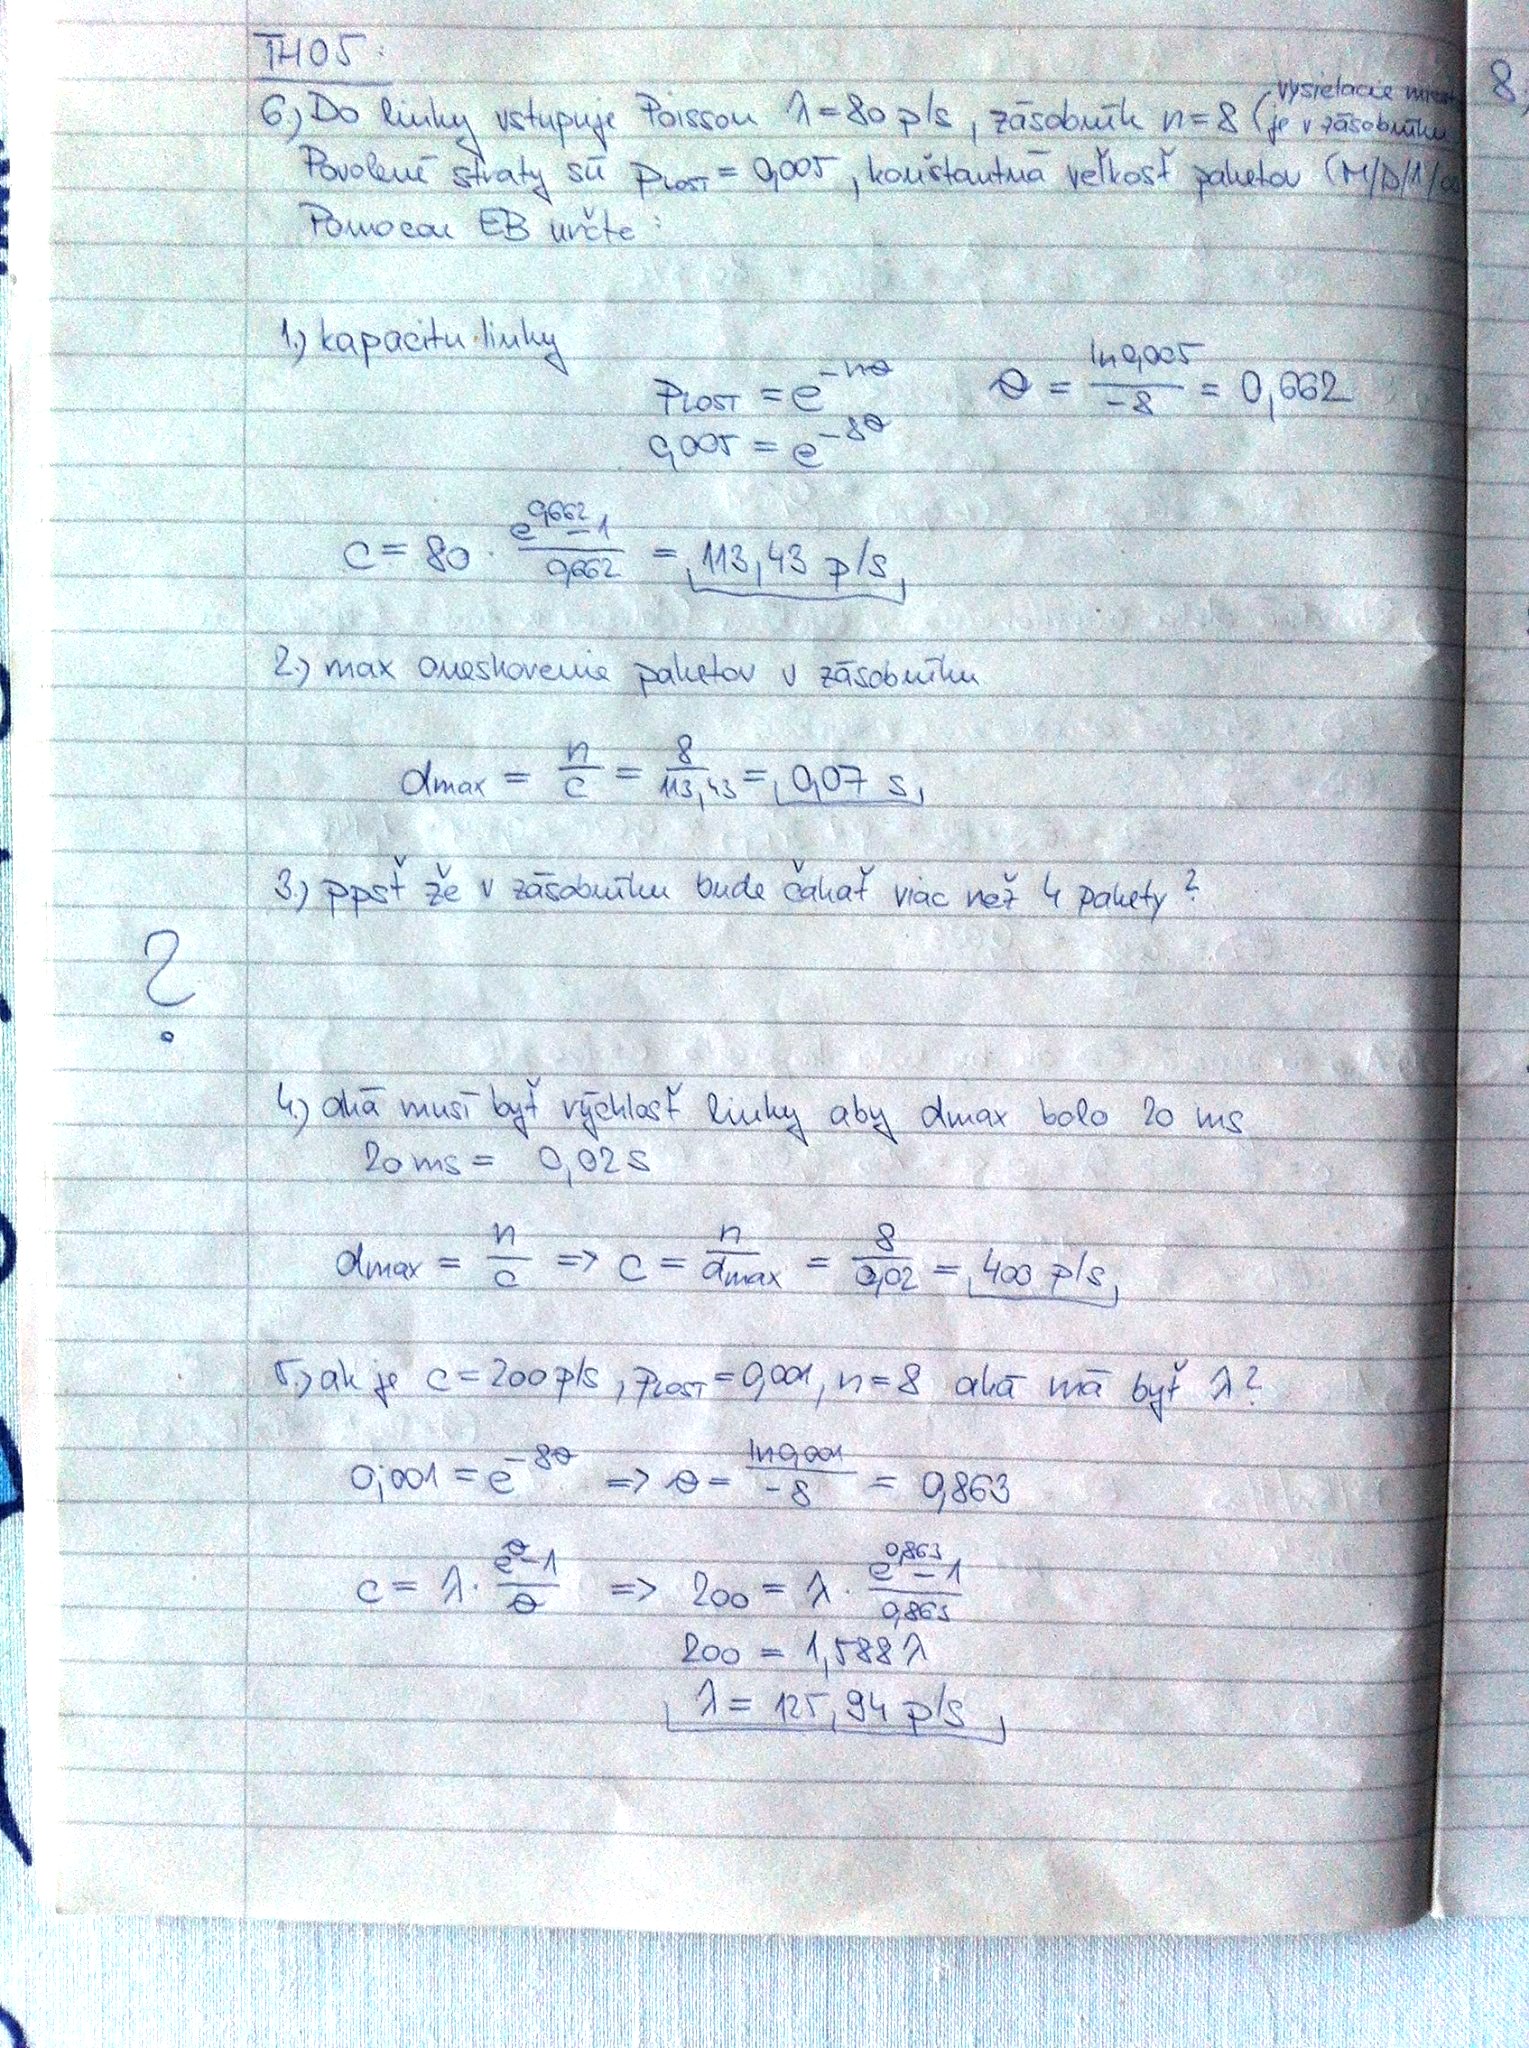 TH05:
6,) Do linky vstupuje Poisson λ = 80 p/s, zásobník n = 8 (vysielacie miesto
je v zásobníku
Povolené straty sú PLOST = 0,005, konštantná veľkosť paketov (M/D/1/∞
Pomocou EB určte:
1.) kapacitu linky
PLOST = e^{-nθ} θ = ln 0,005 / -8 = 0,662
0,005 = e^{-8θ}
c = 80 · (e^{0,662} - 1) / 0,662 = 113,43 p/s
2.) max oneskorenie paketov v zásobníku
dmax = n/c = 8/113,43 = 0,07 s
3.) ppsť že v zásobníku bude čakať viac než 4 pakety?
?
4.) aká musí byť rýchlosť linky aby dmax bolo 20 ms
20 ms = 0,02 s
dmax = n/c => c = n/dmax = 8/0,02 = 400 p/s
5.) ak je c = 200 p/s, PLOST = 0,001, n = 8 aká má byť λ?
0,001 = e^{-8θ} => θ = ln 0,001 / -8 = 0,863
c = λ · (e^θ - 1) / θ => 200 = λ · (e^{0,863} - 1) / 0,863
200 = 1,588 λ
λ = 125,94 p/s
8,